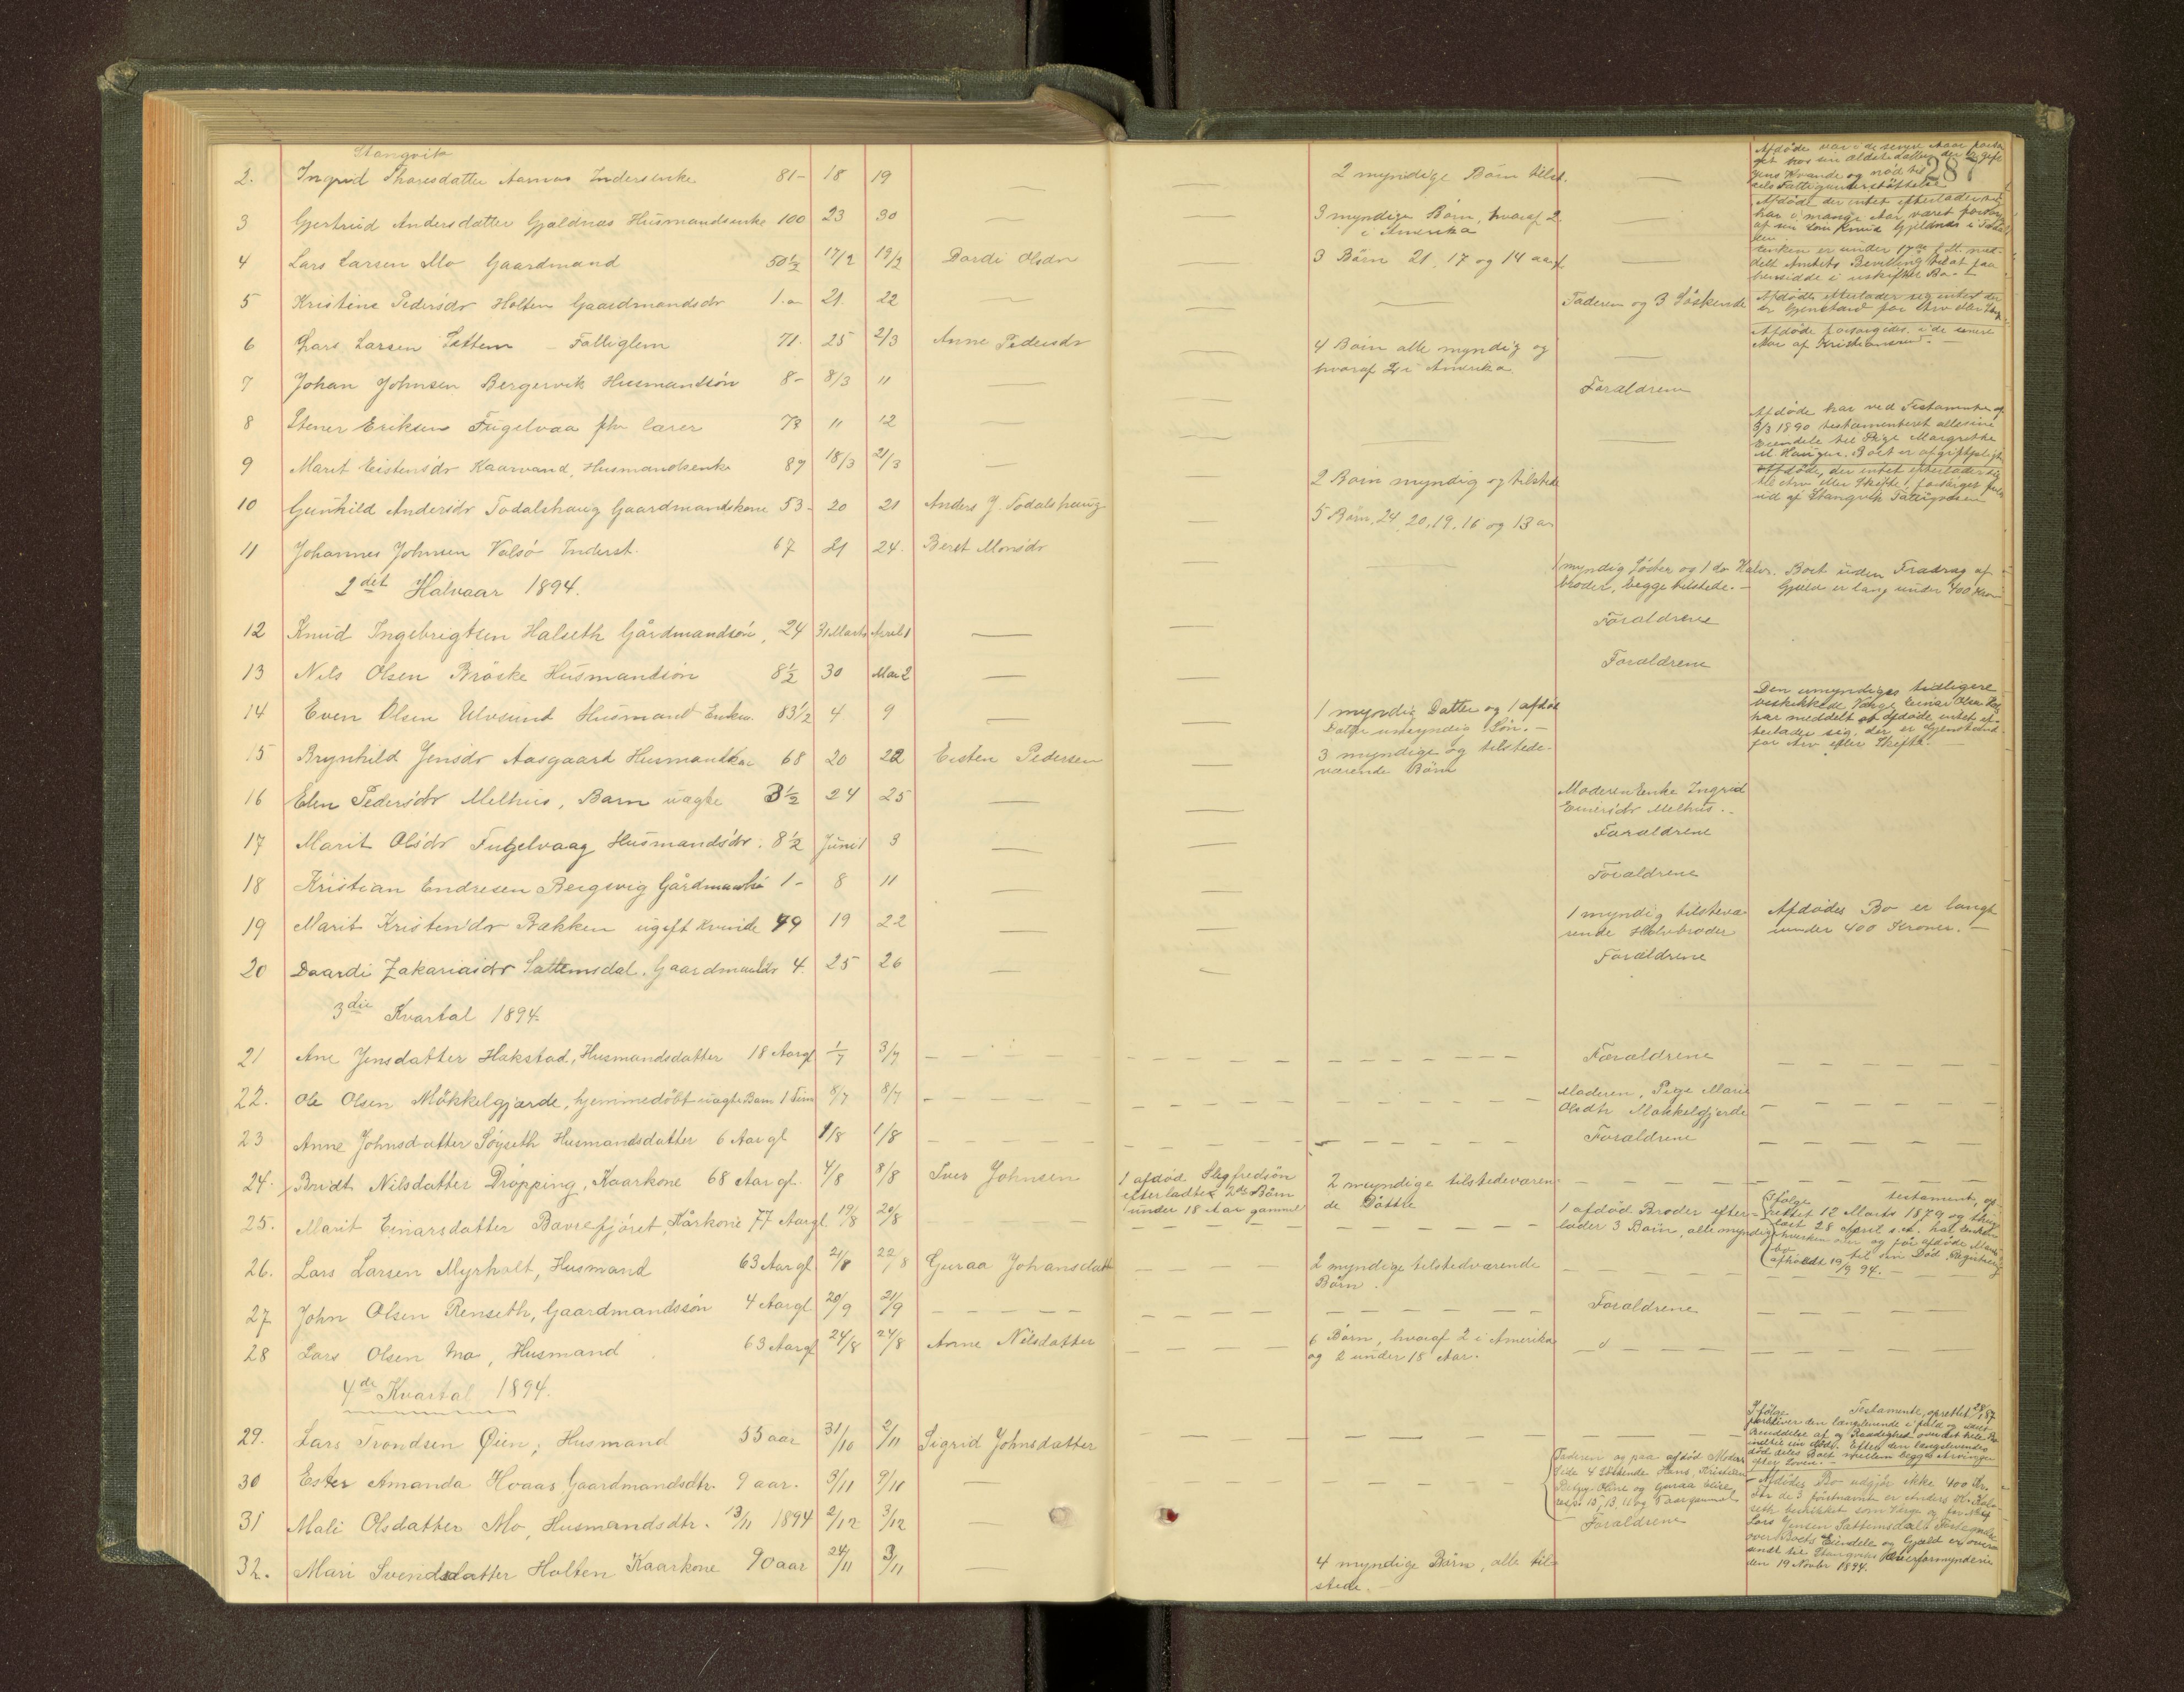 Stangvik
287
2. Ingrid Tharesdatter Aarnes Inderstenke 81 - 18 19 — — 2 myndige Börn tilst. — Afdöde var i de senere Aar forsör
get hos sin ældste datter, der er gift
paa Kvande og nöd til
dels Fattigunderstöttelse
3 Gjertrud Andersdatter Gjeldnæs Husmandsenke 100 23 30 — — 3 myndige Börn, hvoraf 2
i Amerika — Afdöde der intet efterlader sig
har i mange Aar været forsörg
af sin Sön Knud Gjeldnæs i Todal
len.
4 Lars Larsen Mo Gaardmand 50½ 17/2 19/2 Dordi Olsdr — 3 Börn 21, 17 og 14 aar — Enken er under 17de f. M. med
delt Amtets Bevilling til at faa
hensidde i uskiftet Bo. —
5 Kristine Pedersdr Holten Gaardmandsdr 1. a 21. 22 — — — Faderen og 3 Söskende Afdöde efterlader sig intet der
er Gjenstand for Arv eller
6 Lars Larsen Settem - Fattiglem 71. 25 2/3 Anne Pedersdr — 4 Börn alle myndig og
hvoraf 2 i Amerika. — Afdöde forsörgedes i de senere
Aar af Kristiansund. —
7 Johan Johnsen Bergervik Husmandsön 8 - 8/3 11 — — Forældrene
8 Stener Eriksen Fugelvaa fhv lærer 73 11 12 — — — — Afdöde har ved Testamente af
3/3 1890 testamenteret alle sine
Eiendele til Pige Margrethe
M. Hangen. Boet er afgiftspligt
9 Marit Eistensdr Kaarvand Husmandsenke 89 18/3 21/3 — — 2 Börn myndig og tilstede Afdöde, der intet efterlader sig
til Arv eller Skifte, forsörges fuldt
ud af Stangvik Fattigvæsen
10 Gunhild Andersdr Todalshaug Gaardmandskone 53 - 20 21 Anders J. Todalshaug — 5 Börn, 24, 20, 19, 16 og 13 aar
11 Johannes Johnsen Valsö Inderst. 67 21 24. Beret Monsdr — — 1 myndig Söster og 1 do Halv-
broder, begge tilstede. — Boet uden Fradrag af
Gjeld er lang under 400 Kron
2det Halvaar 1894.
12 Knud Ingebrigtsen Halseth Gårdmandsön, 24 31 Marts April 1 — — Forældrene
13 Nils Olsen Bröske Husmandsön 8½ 30 Mai 2 — — Forældrene
14 Even Olsen Ulvsund Husmand Enkem. 83½ 4 9 — — 1 myndig Datter og 1 afdöd
Datter umyndig Sön. — Den umyndiges tidligere
beskikkede Værge Einar Olsen
har meddelt at afdöde intet ef-
terlader sig, der er Gjenstand
for Arv eller Skifte. —
15 Brynhild Jensdr Aasgaard Husmandskon 68 20 22 Eisten Pedersen — 3 myndige og tilstede-
værende Börn
16 Elen Pedersdr Melhus, Barn uægte 3½ 24 25 — — Moderen Enke Ingrid
Einersdr Melhus. -
17 Marit Olsdr Fugelvaag Husmandsdr. 8½ Juni 1 3 — — Forældrene
18 Kristian Endresen Bergsvig Gårdmandsö 1 - 8 11 — — Forældrene
19 Marit Kristensdr Bakken ugift Kvinde 49 19 22 — — 1 myndig tilstevæ
rende Halvbroder Afdödes Bo er langt
under 400 Kroner. —
20 Daardi Zakariasdr Sattemsdal. Gaardmandsdr 4. 25 26 — — Forældrene
3die Kvartal 1894.
21 Ane Jensdatter Hakstad, Husmandsdatter 18 Aargl 1/7 3/7 — — — Forældrene —
22. Ole Olsen Mökkelgjærde, hjemmedöbt uægte Barn 1 Tim 8/7 8/7 — — — Moderen, Pige Marie
Olsdtr Mökkelgjerde —
23 Anne Johnsdatter Söyseth Husmandsdatter 6 Aar gl 1/8 1/8 — — — Forældrene —
24. Bridt Nilsdatter Dröpping, Kaarkone 68 Aar gl. 4/8 8/8 Iver Johnsen 1 afdöd Slegfredsön
efterladter 2de Börn
under 18 Aar gammel 2 myndige tilstedeværen
de Döttre —
25. Marit Einarsdatter Bævrefjöret, Kårkone 77 Aargl. 19/8 20/8 — — — 1 afdöd Broder efter-
lader 3 Börn, alle myndige Ifölge testament, op-
rettet 12 Marts 1879 og thing
læst 28 April s. a. har enken
hvesken over og for afdöde Mands
bo til sin Död Registrering
afholdt 19/9 94. —
26. Lars Larsen Myrholt, Husmand 63 Aar gl 21/8 22/8 Guraa Johansdatt — 2 myndige tilstedværende
Börn. — —
27 John Olsen Renseth, Gaardmandssön 4 Aargl 20/9 21/9 — — — Forældrene —
28 Lars Olsen Mo, Husmand 63 Aargl 24/8 24/8 Anne Nilsdatter — 6 Börn, hvoraf 2 i Amerika
og 2 under 18 Aar. — —
4de Kvartal 1894.
29. Lars Trondsen Øien, Husmand 55 aar 31/10 2/11 Sigrid Johnsdatter — — — Ifölge Testamente, oprettet
forbliver den længstlevende i fuld og uind
skrænket Raadighed over det hele Bo
indtil sin död. Efter den længstlevendes
död deles Boet mellem begges Arvinger
efter Loven. —
30 Ester Amanda Hvaas, Gaardmandsdtr. 9 aar. 3/11 9/11 — — — Faderen og paa afdöd Moders
Side 4 Söskende Hans, Kristian
Petter Oline og Guraa Elise
resp. 15, 13, 11 og 5 aar gammel Afdödes Bo udgjör ikke 400 Kr.
For de 3 förstnævnte er Anders K. Hals
seth beskikket som Værge og for
Lars Jensen Sættemsdal. Fortegnelse
over Boets Eiendele og Gjæld er overs
endt til Stangviks Overformynderi
den 19 Novbr 1894.
31 Mali Olsdatter Mo, Husmandsdtr. 13/11 1894 2/12 3/12 — Forældrene
32. Mari Svendsdatter Holten Kaarkone 90 aar 24/11 3/11 — 4 myndige Börn, alle til-
stede. —